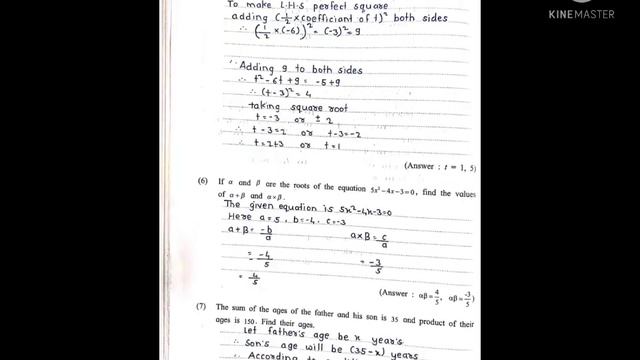 To make L.H.S perfect square
KINEMASTER
adding (-1/2 x coefficiant of t)² both sides
∴ (1/2 x (-6))² = (-3)² = 9
Adding 9 to both sides
∴ t² - 6t + 9 = -5+9
∴ (t-3)² = 4
taking square root
t = -3 or ± 2
∴ t-3=2 or t-3=-2
∴ t=2+3 or t=1
(Answer : t = 1, 5)
(6) If α and β are the roots of the equation 5x²-4x-3=0, find the values
of α+β and α×β.
The given equation is 5x²-4x-3=0
Here a=5, b=-4, c=-3
a+B = -b/a a×B = c/a
= - -4/5 = -3/5
= 4/5
(Answer : αβ = 4/5, αβ = -3/5)
(7) The sum of the ages of the father and his son is 35 and product of their
ages is 150. Find their ages.
Let father's age be x years
∴ Son's age will be (35-x) years
∴ According to